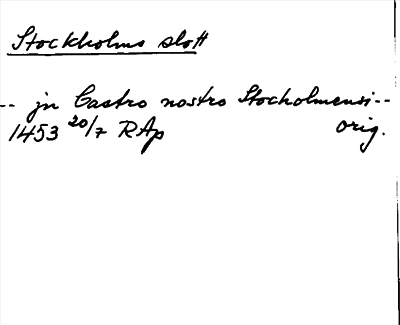 Stockholms slott
-- jn Castro nostro Stocholmensi --
1453 20/7 RAp orig.